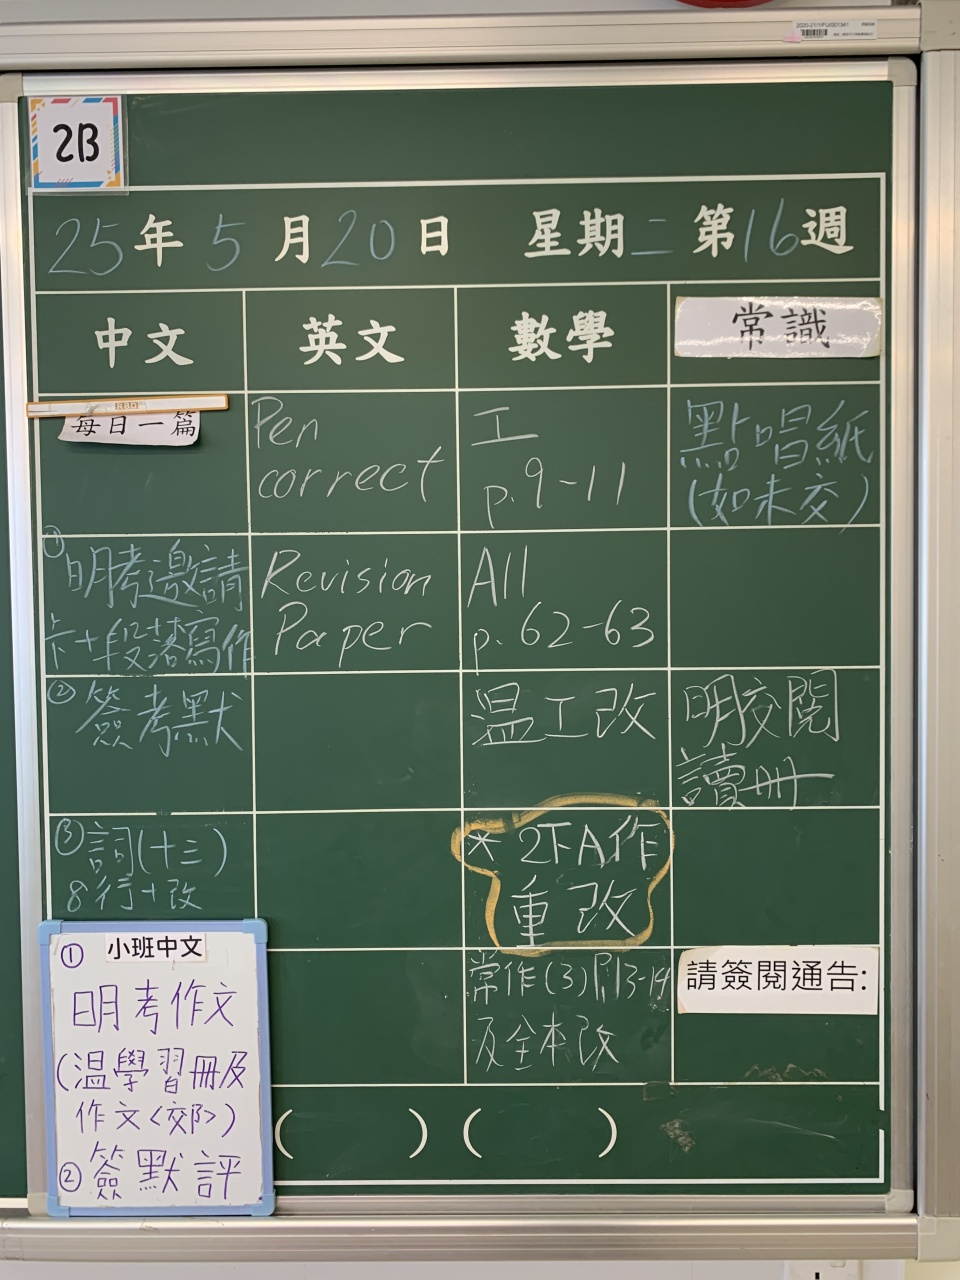 2020-21/YIFU/GD/1341
2B
25年5月20日 星期二 第16週
中文
英文
數學
常識
每日一篇
Pen
correct
工
p.9-11
點唱紙
(如未交)
①
明考邀請
卡+段落寫作
Revision
Paper
All
p.62-63
②簽考默
温工改
明交閱
讀冊
③詞(十三)
8行+改
* 2下A作
重改
常作(3)P.13-14
及全本改
請簽閱通告:
① 小班中文
明考作文
(温學習冊及
作文<郊>)
② 簽默評
( ) ( )